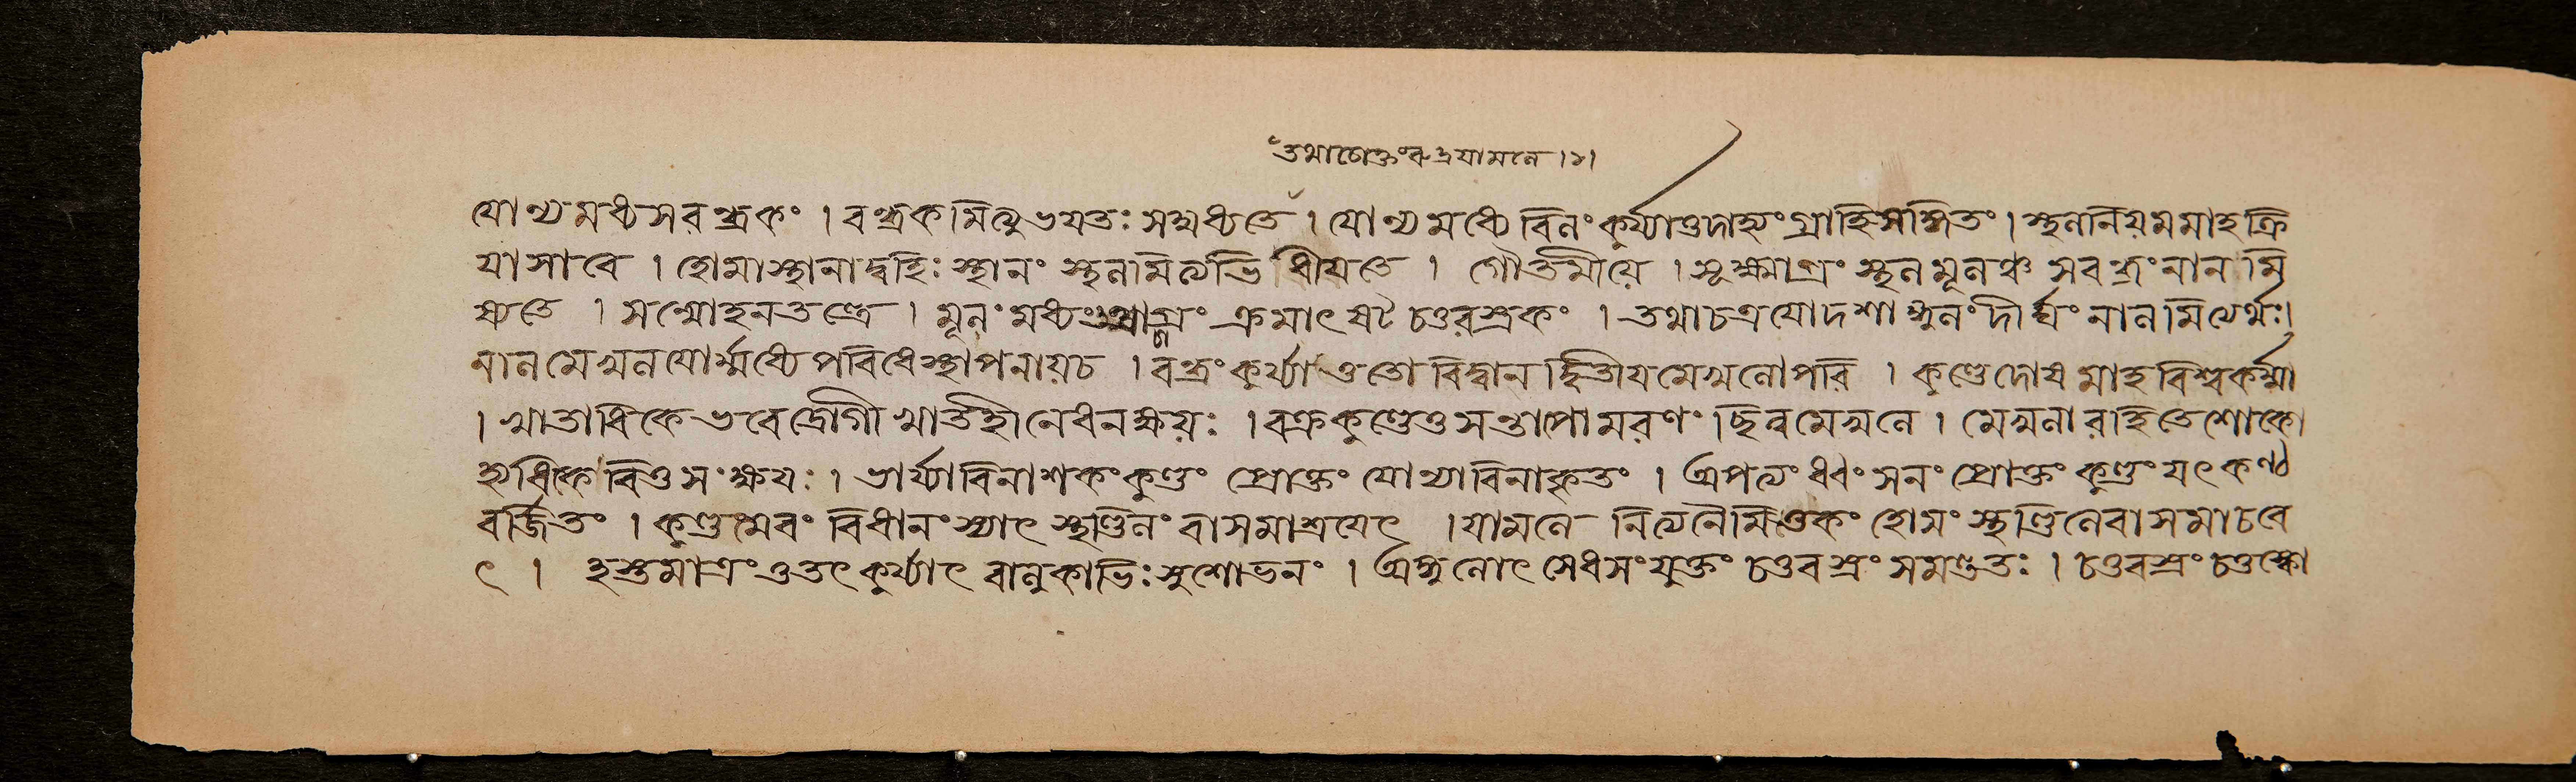 তথাচোক্তং রুদ্রযামলে ।১।
যোন্যমধ্যসরন্ধ্রকং । রন্ধ্রকমিত্যুভযতঃ সম্বধ্যতে । যোন্যমধ্যে বিলং কুর্য্যাত্তদাহ্যং গ্রাহি সম্মিতং । স্থলনিয়মমাহ ক্রি
যাসাবে । হোমাস্থানাদ্বহিঃ স্থানং স্থলমিত্যভিধীযতে । গৌতমীয়ে । সূক্ষ্মাগ্রং স্থলমূলঞ্চ সরন্ধ্রং নালমি
ষ্যতে । সম্মোহনতন্ত্রে । মূলং মধ্যং তথাগ্রং ক্রমাৎ ষট্ চতুরস্রকং । তথাচ ত্রযোদশাঙ্গুলং দীর্ঘং নালমিত্যর্থঃ।
নালমেখলযোর্ম্মধ্যে পরিধেস্থাপনায় চ । রন্ধ্রং কুর্য্যাত্ততো বিদ্বান দ্বিতীযমেখলোপরি । কুণ্ডে দোষমাহ বিশ্বকর্ম্মা
। খাতাধিকে ভবেদ্রোগী খাতহীনে ধনক্ষয়ঃ । বক্রকুণ্ডেতু সন্তাপো মরণং ছিন্নমেখলে । মেখলারহিতে শোকো
হ্যধিকে বিত্তসংক্ষযঃ । ভার্য্যাবিনাশকং কুণ্ডং প্রোক্তং যোন্যাবিনাকৃতং । অপত্যং ধ্বংসনং প্রোক্তং কুণ্ডং যৎ কণ্ঠ
বর্জিতং । কুণ্ডমেবং বিধানং স্যাৎ স্থণ্ডিলং বা সমাশ্রযেৎ । যামলে নিত্যনৈমিত্তিকং হোমং স্থণ্ডিলে বা সমাচরে
ৎ । হস্তমাত্রং তু তৎ কুর্য্যাৎ বালুকাভিঃ সুশোভনং । অঙ্গুলোৎসেধসংযুক্তং চতুরস্রং সমন্ততঃ । চতুরস্রং চতুষ্কো